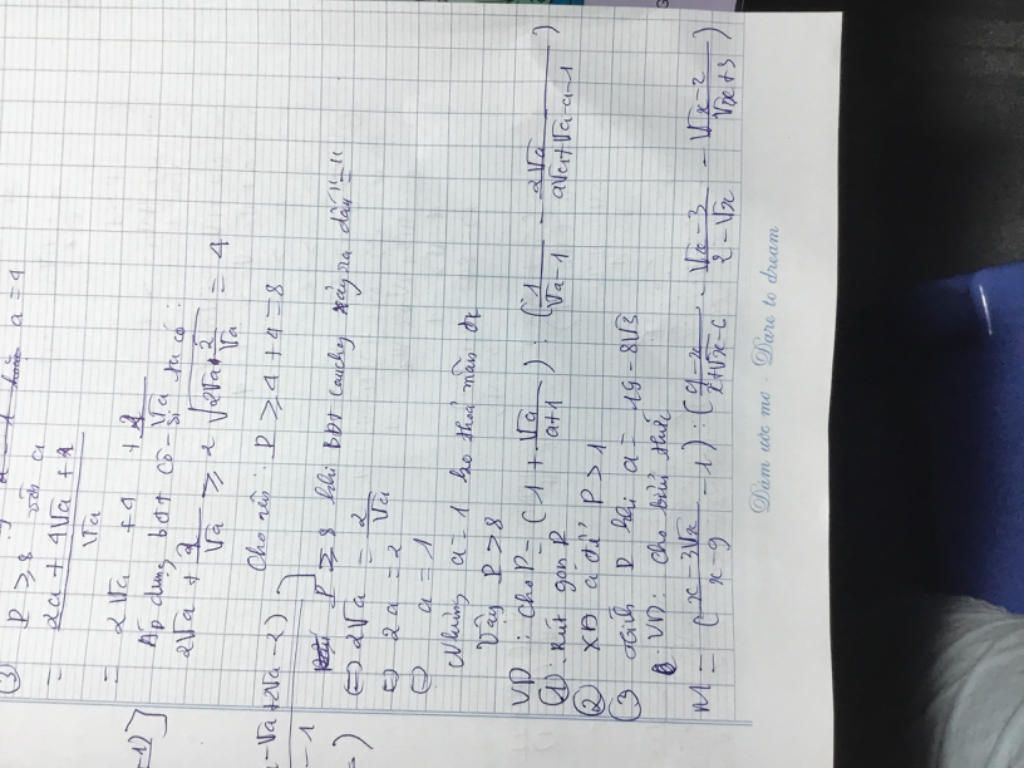 ③ P ≥ 8 với a = 4
= 2a + 4√a + 2 / √a
= 2√a + 4 + 2/√a
Áp dụng bđt cô-si ta có:
2√a + 2/√a ≥ 2 √(2√a · 2/√a) = 4
Cho nên: P ≥ 4 + 4 = 8
-√a + 2√a - 2)
-1)]
- 1
= )
P ≥ 8 khi BĐT Cauchy xảy ra dấu "="
⇔ 2√a = 2/√a
⇔ 2a = 2
⇔ a = 1
Nhưng a = 1 ko thoả mãn đk
Vậy P > 8
VD: Cho P = (1 + √a/(a+1)) : (1/(√a-1) - 2√a/(a√a+√a-a-1))
①: Rút gọn P
② XĐ a để P > 1
③ Tính P khi a = 19 - 8√3
VD: Cho biểu thức
M = ((x-3√x)/(x-9) - 1) : ((9-x)/(x+√x-6) - (√x-3)/(2-√x) - (√x-2)/(√x+3))
Dám ước mơ - Dare to dream